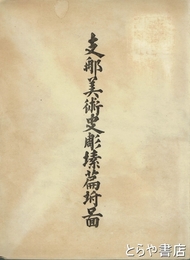 支那美術史彫塑篇附圖
とらや書店